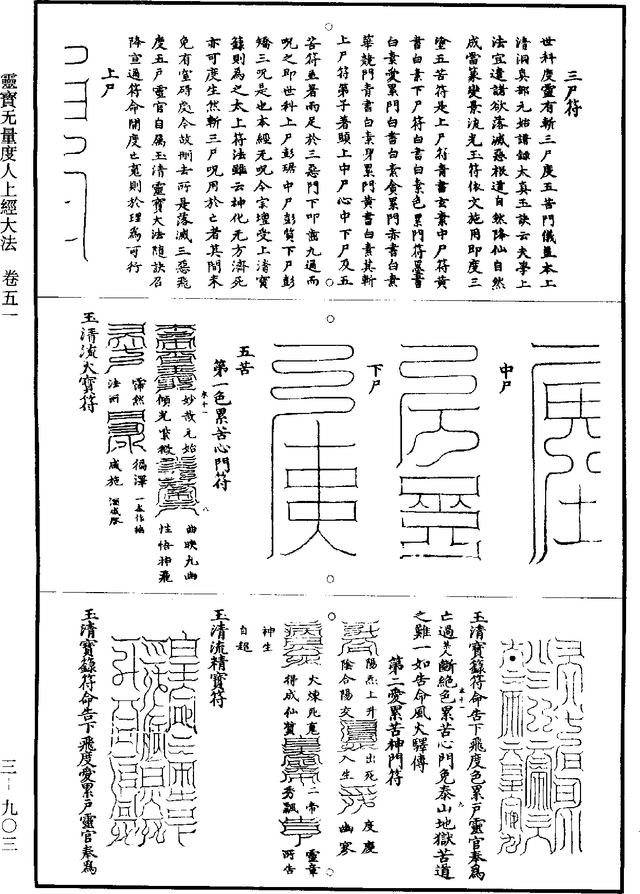 三尸符
世科度靈有斬三尸度五苦門儀蓋本上
清洞真部元始譜錄太真玉訣云夫學上
法宜遣諸欲落滅惡根道自然降仙自然
成當篆變景流光玉符依文施用即度三
塗五苦符是上尸符青書玄素中尸符黃
書白素下尸符白書白素色累門符墨書
白素愛累門白書白素貪累門赤書白素
華競門青書白素身累門黃書白素其斬
上尸符弟子著頭上中尸心中下尸及五
苦符並著兩足於三惡門下叩齒九過而
呪之即世科上尸彭琚中尸彭質下尸彭
矯三呪是也本經无呪今宗壇受上清寶
籙則為之太上符法雖云神化无方濟死
亦可度生然斬三尸呪用於亡者其間未
免有窒碍度今故刪去所是落滅三惡飛
度五戶靈官自屬玉清靈寶大法隨訣召
降宣通符命開度亡寃則於理為可行
上尸
中尸
下尸
五苦
第一色累苦心門符
妙哉元始
傾光紫微
曲映九幽
性悟神飛
霈然
法雨
徧澤
咸施
玉清流火寶符
玉清寶籙符命告下飛度色累戶靈官奉為
亡過某人斷絕色累苦心門免泰山地獄苦道
之難一如告命風火驛傳
第二愛累苦神門符
陽杰上升
陰合陽交
出死
入生
度慶
幽寥
火煉死寃
得成仙質
二帝
秀飄
靈章
所告
神生
自超
玉清流精寶符
玉清寶籙符命告下飛度愛累戶靈官奉為
靈寶无量度人上經大法 卷五一
三-九〇三